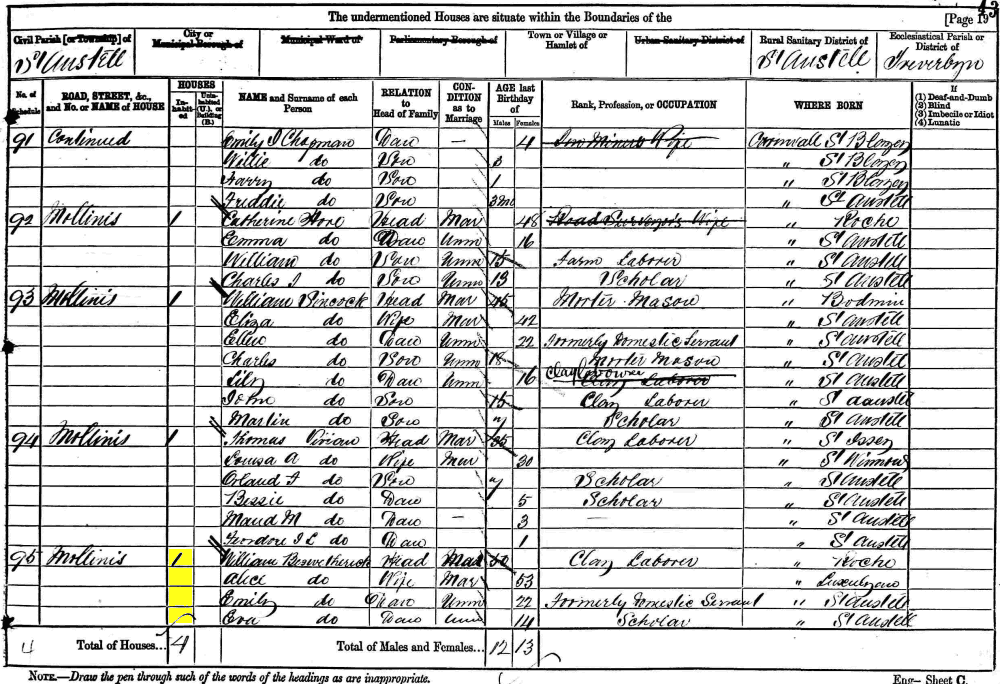 43
The undermentioned Houses are situate within the Boundaries of the [Page 19
Civil Parish [or Township] of St Austell
City or Municipal Borough of
Municipal Ward of
Parliamentary Borough of
Town or Village or Hamlet of
Urban Sanitary District of
Rural Sanitary District of St Austell
Ecclesiastical Parish or District of Treverbyn
No. of Schedule ROAD, STREET, &c., and No. or NAME of HOUSE HOUSES Inhabited Uninhabited (U.), or Building (B.) NAME and Surname of each Person RELATION to Head of Family CONDITION as to Marriage AGE last Birthday of Males Females Rank, Profession, or OCCUPATION WHERE BORN If (1) Deaf-and-Dumb (2) Blind (3) Imbecile or Idiot (4) Lunatic
91 Continued Emily J Chapman Daw — 4 Cornwall St Blazey
Willie do Son 3 " St Blazey
Harry do Son 1 " St Blazey
Freddie do Son 3mo " St Austell
92 Mollinis 1 Catherine Hore Head Mar 48 Road Surveyor's Wife " Roche
Emma do Daw Unm 16 " St Austell
William do Son Unm 15 Farm Laborer " St Austell
Charles J do Son Unm 13 Scholar " St Austell
93 Mollinis 1 William Pincock Head Mar 45 Morter Mason " Bodmin
Eliza do Wife Mar 42 " St Austell
Ellen do Daw Unm 22 Formerly Domestic Servant " St Austell
Charles do Son Unm 18 Morter Mason " St Austell
Lily do Daw Unm 16 Clay Laborer " St Austell
John do Son 15 Clay Laborer " St Aaustell
Martin do Son 7 Scholar " St Austell
94 Mollinis 1 Thomas Vivian Head Mar 35 Clay Laborer " St Issey
Louisa A do Wife Mar 30 " St Winnow
Orland J do Son 7 Scholar " St Austell
Bessie do Daw 5 Scholar " St Austell
Maud M do Daw — 3 — " St Austell
do Daw 1 " St Austell
95 Mollinis 1 William Head Mar 50 Clay Laborer " Roche
Alice do Wife Mar 53 "
Emily do Daw Unm 22 Formerly Domestic Servant " St Austell
Eva do Daw Unm 14 Scholar " St Austell
4 Total of Houses... 4 Total of Males and Females... 12 13
NOTE.—Draw the pen through such of the words of the headings as are inappropriate. Eng— Sheet C.